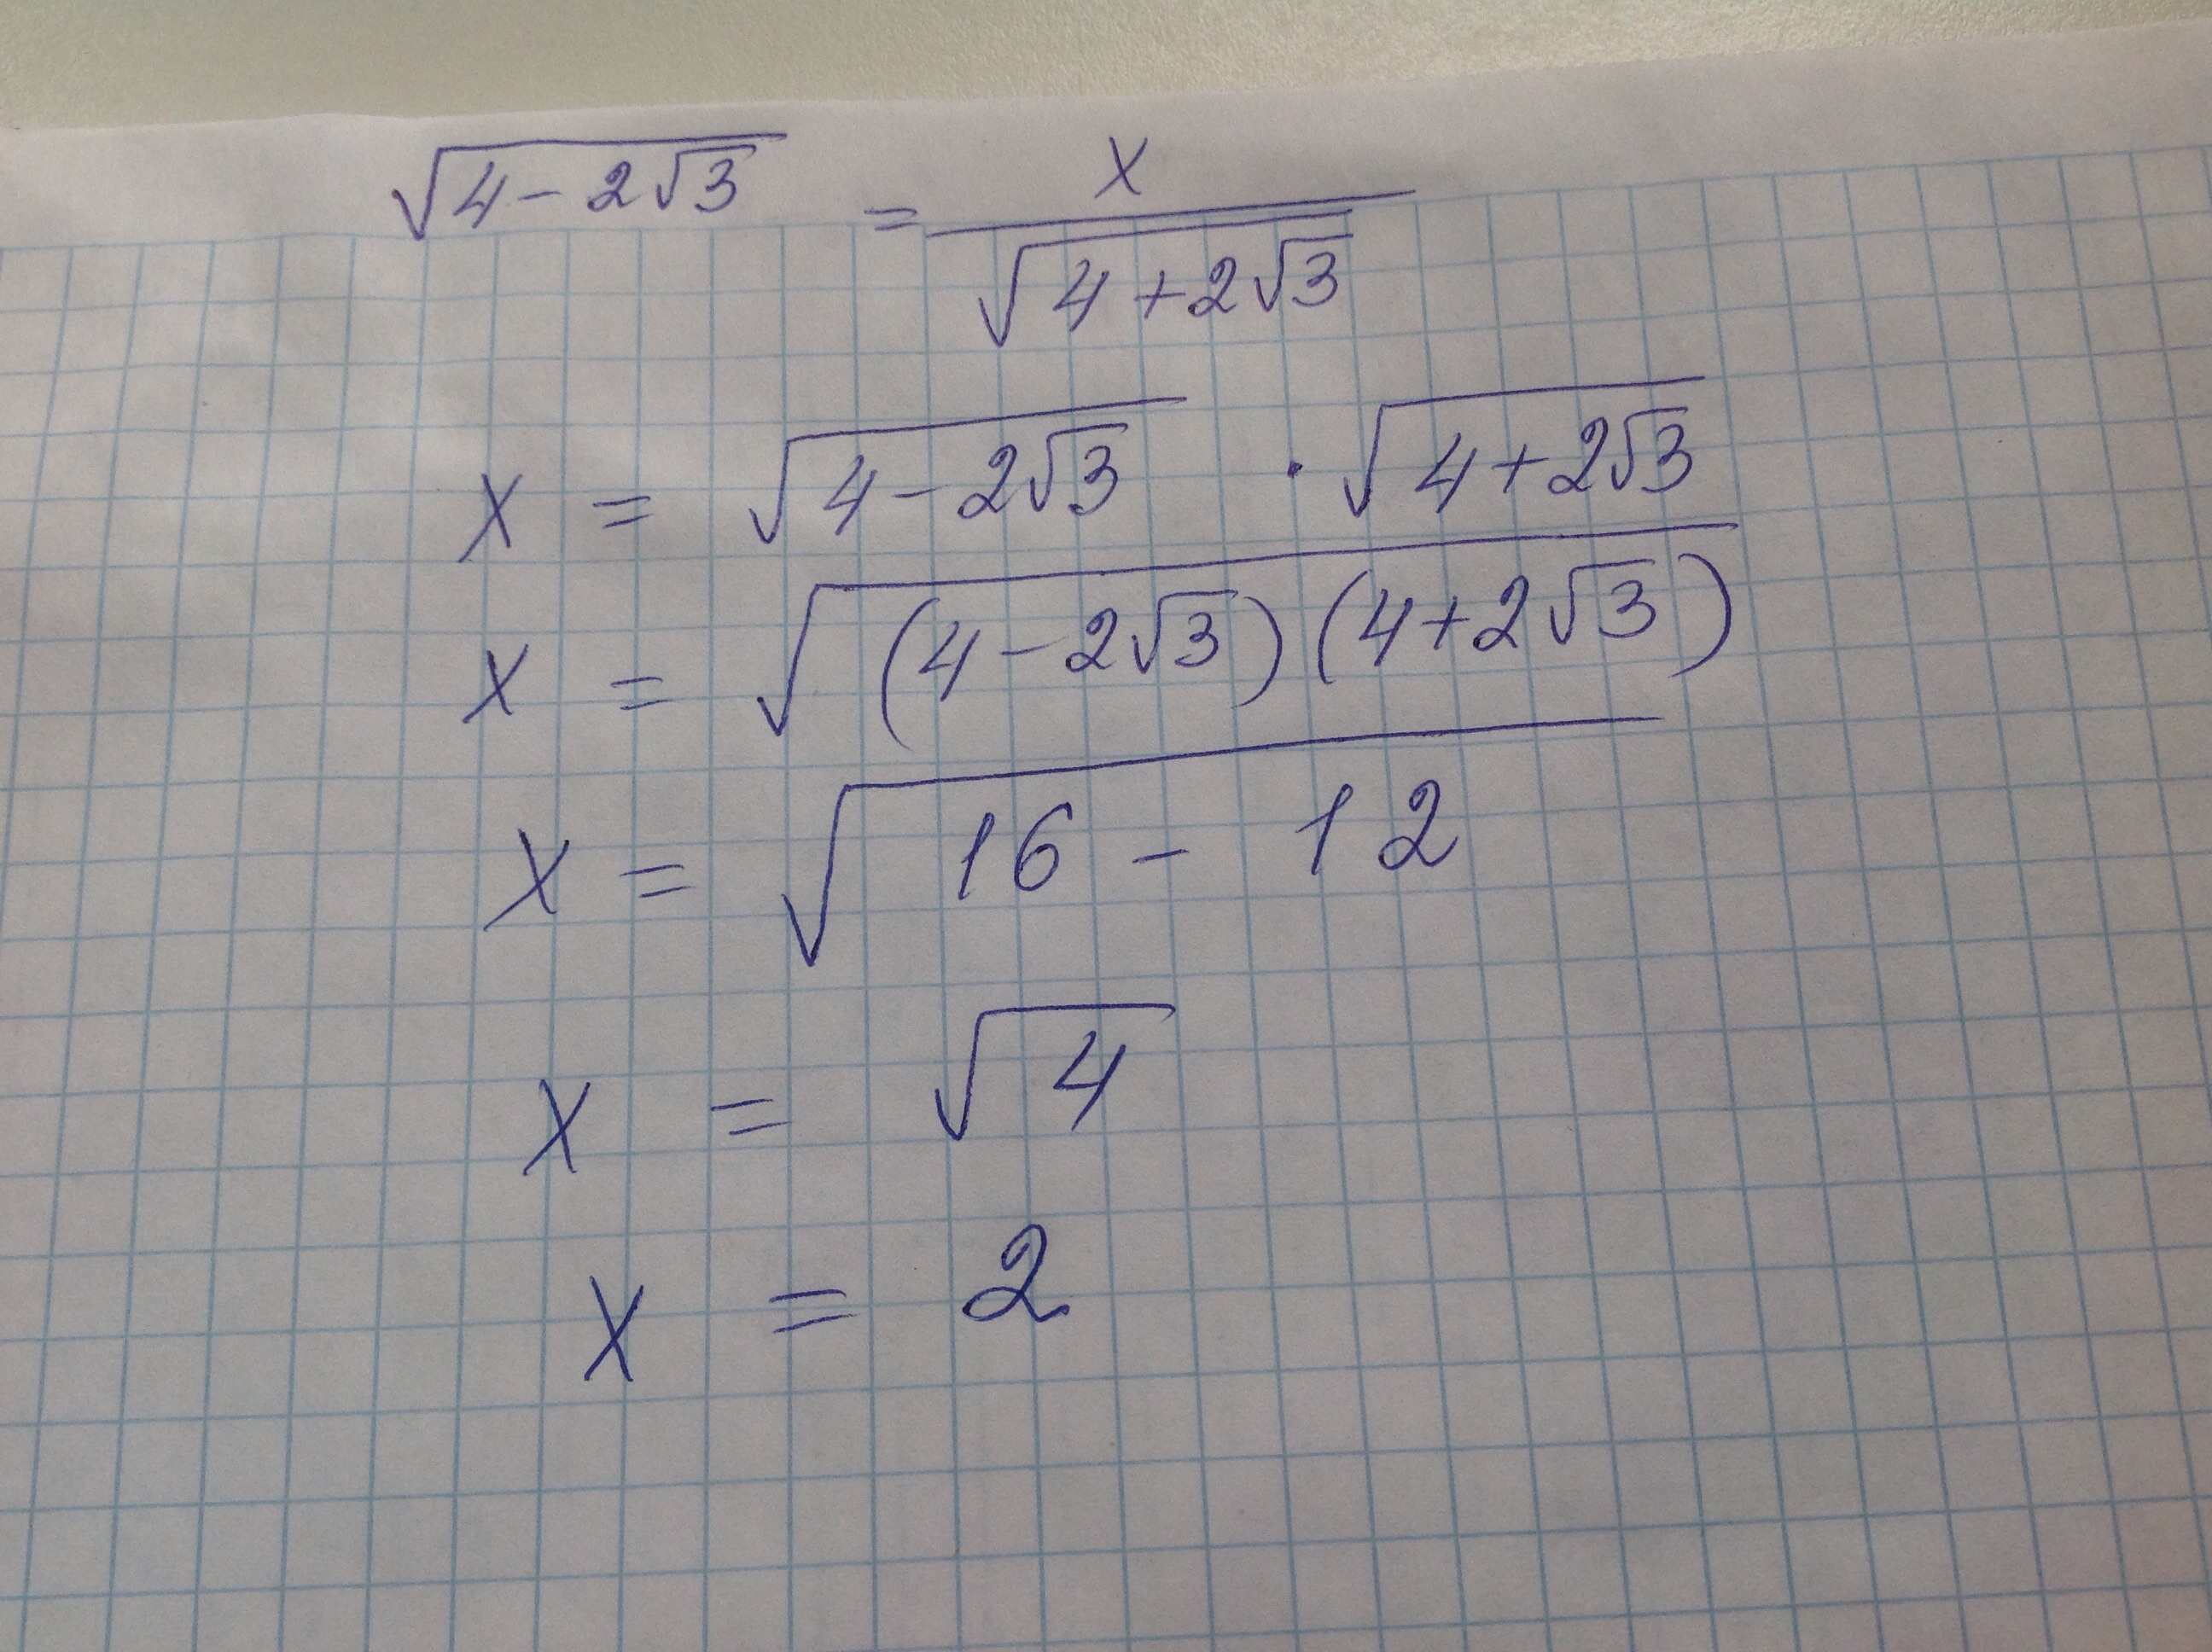 √(4-2√3) = x/√(4+2√3)
x = √(4-2√3) · √(4+2√3)
x = √((4-2√3)(4+2√3))
x = √(16-12)
x = √4
x = 2